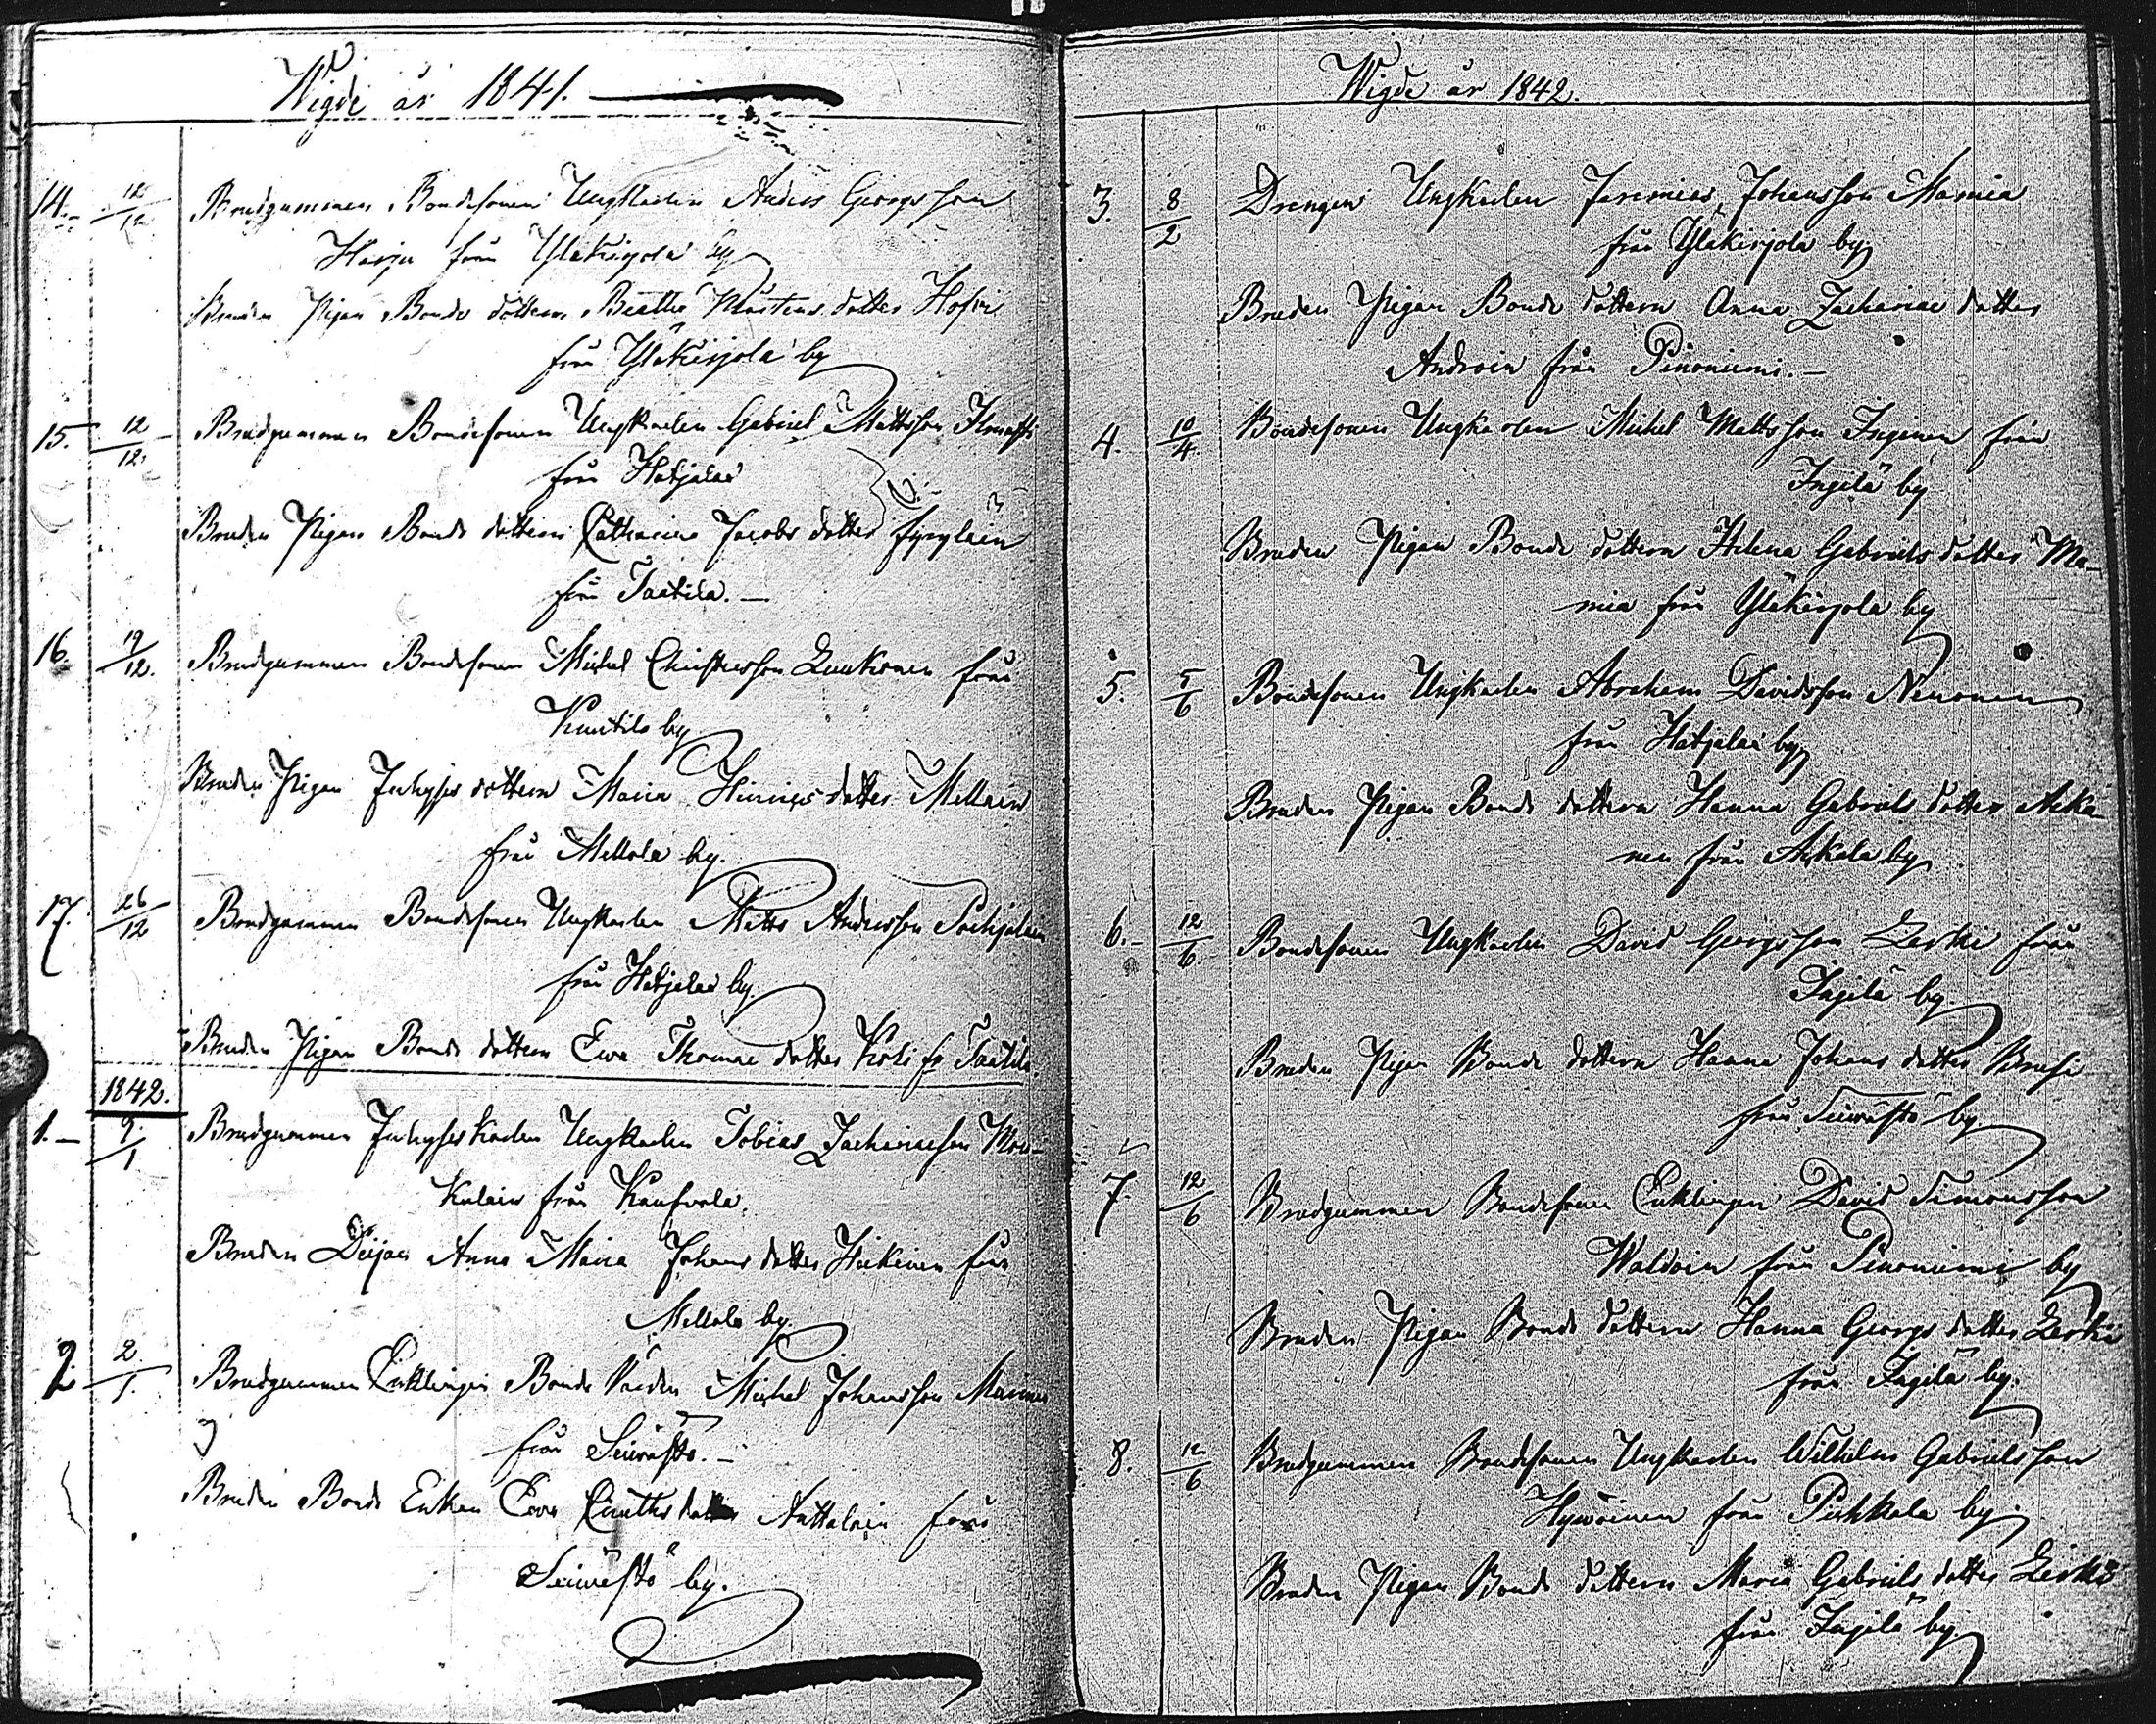 Wigde år 1841.
14. 12/12 Brudgummen Bondesonen Ungkarlen Anders Georgsson
Harju från Yläkirjola by
Bruden Pigan Bonde dottern Beatha Mårtens dotter Hofvi
från Yläkirjola by
15. 12/12 Brudgummen Bondesonen Ungkarlen Gabriel Mattsson
från Hatjalax
Bruden Pigan Bonde dottern Catharina Jacobs dotter
från Taatila.
16. 19/12. Brudgummen Bondesonen Michel Christersson Laukonen från
Kuntila by
Bruden Pigan Inhyses dottern Maria Hinrics dotter Mellain
från Mellola by.
17. 26/12 Brudgummen Bondesonen Ungkarlen Matts Andersson
från Hatjalax by.
Bruden Pigan Bonde dottern Ewa Thomae dotter Koli fr Taatila
1842.
1. 9/1 Brudgummen Inhyses Karlen Ungkarlen Tobias Zachariaeson
från Kaufvola.
Bruden Dejan Anna Maria Johans dotter från
Mellola by.
2 2/1. Brudgummen Enklingen Bonde Michel Johansson
från Seiwästö.
Bruden Bonde Enkan Ewa dotter från
Seiwästö by.
Wigde år 1842.
3. 8/2 Drengen Ungkarlen Jeremias Johansson Mamia
från Yläkirjola by
Bruden Pigan Bonde dottern Anna Zachariae dotter
Androin från Pinoniemi.
4. 10/4 Bondesonen Ungkarlen Michel Mattsson Inginen från
Ingilä by
Bruden Pigan Bonde dottern Helena Gabriels dotter Ma-
mia från Yläkirjola by
5. 5/6 Bondesonen Ungkarlen Abraham Davidsson Nenonen
från Hatjalax by
Bruden Pigan Bonde dottern Hanna Gabriels dotter Acka-
nen från Ackala by
6. 12/6 Bondesonen Ungkarlen David Georgsson Leski från
Ingilä by.
Bruden Pigan Bonde dottern Hanna Johans dotter
från Seiwästö by.
7. 12/6 Brudgummen Bondesonen Enklingen David Simonsson
Waldoin från Pinoniemi by
Bruden Pigan Bonde dottern Hanna Georgs dotter Leski
från Ingilä by.
8. 12/6 Brudgummen Bondesonen Ungkarlen Wilhelm Gabrielsson
Hywöinen från Pihkala by
Bruden Pigan Bonde dottern Maria Gabriels dotter Leski
från Ingilä by